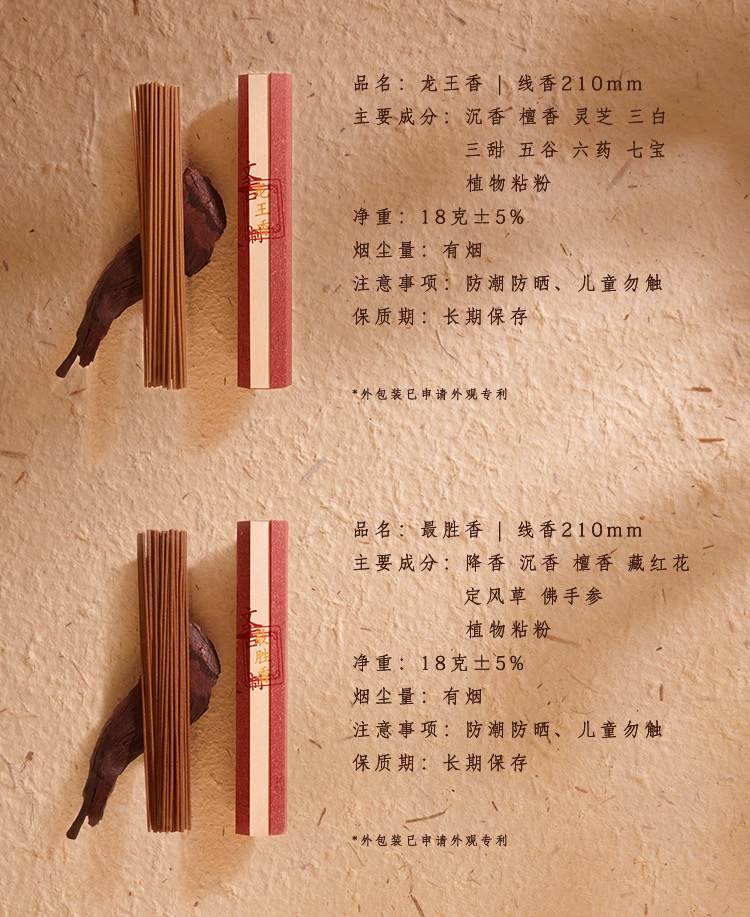 品名：龙王香 | 线香210mm
主要成分：沉香 檀香 灵芝 三白
三甜 五谷 六药 七宝
植物粘粉
净重：18克±5%
烟尘量：有烟
注意事项：防潮防晒、儿童勿触
保质期：长期保存
*外包装已申请外观专利
龙王香
品名：最胜香 | 线香210mm
主要成分：降香 沉香 檀香 藏红花
定风草 佛手参
植物粘粉
净重：18克±5%
烟尘量：有烟
注意事项：防潮防晒、儿童勿触
保质期：长期保存
*外包装已申请外观专利
最胜香